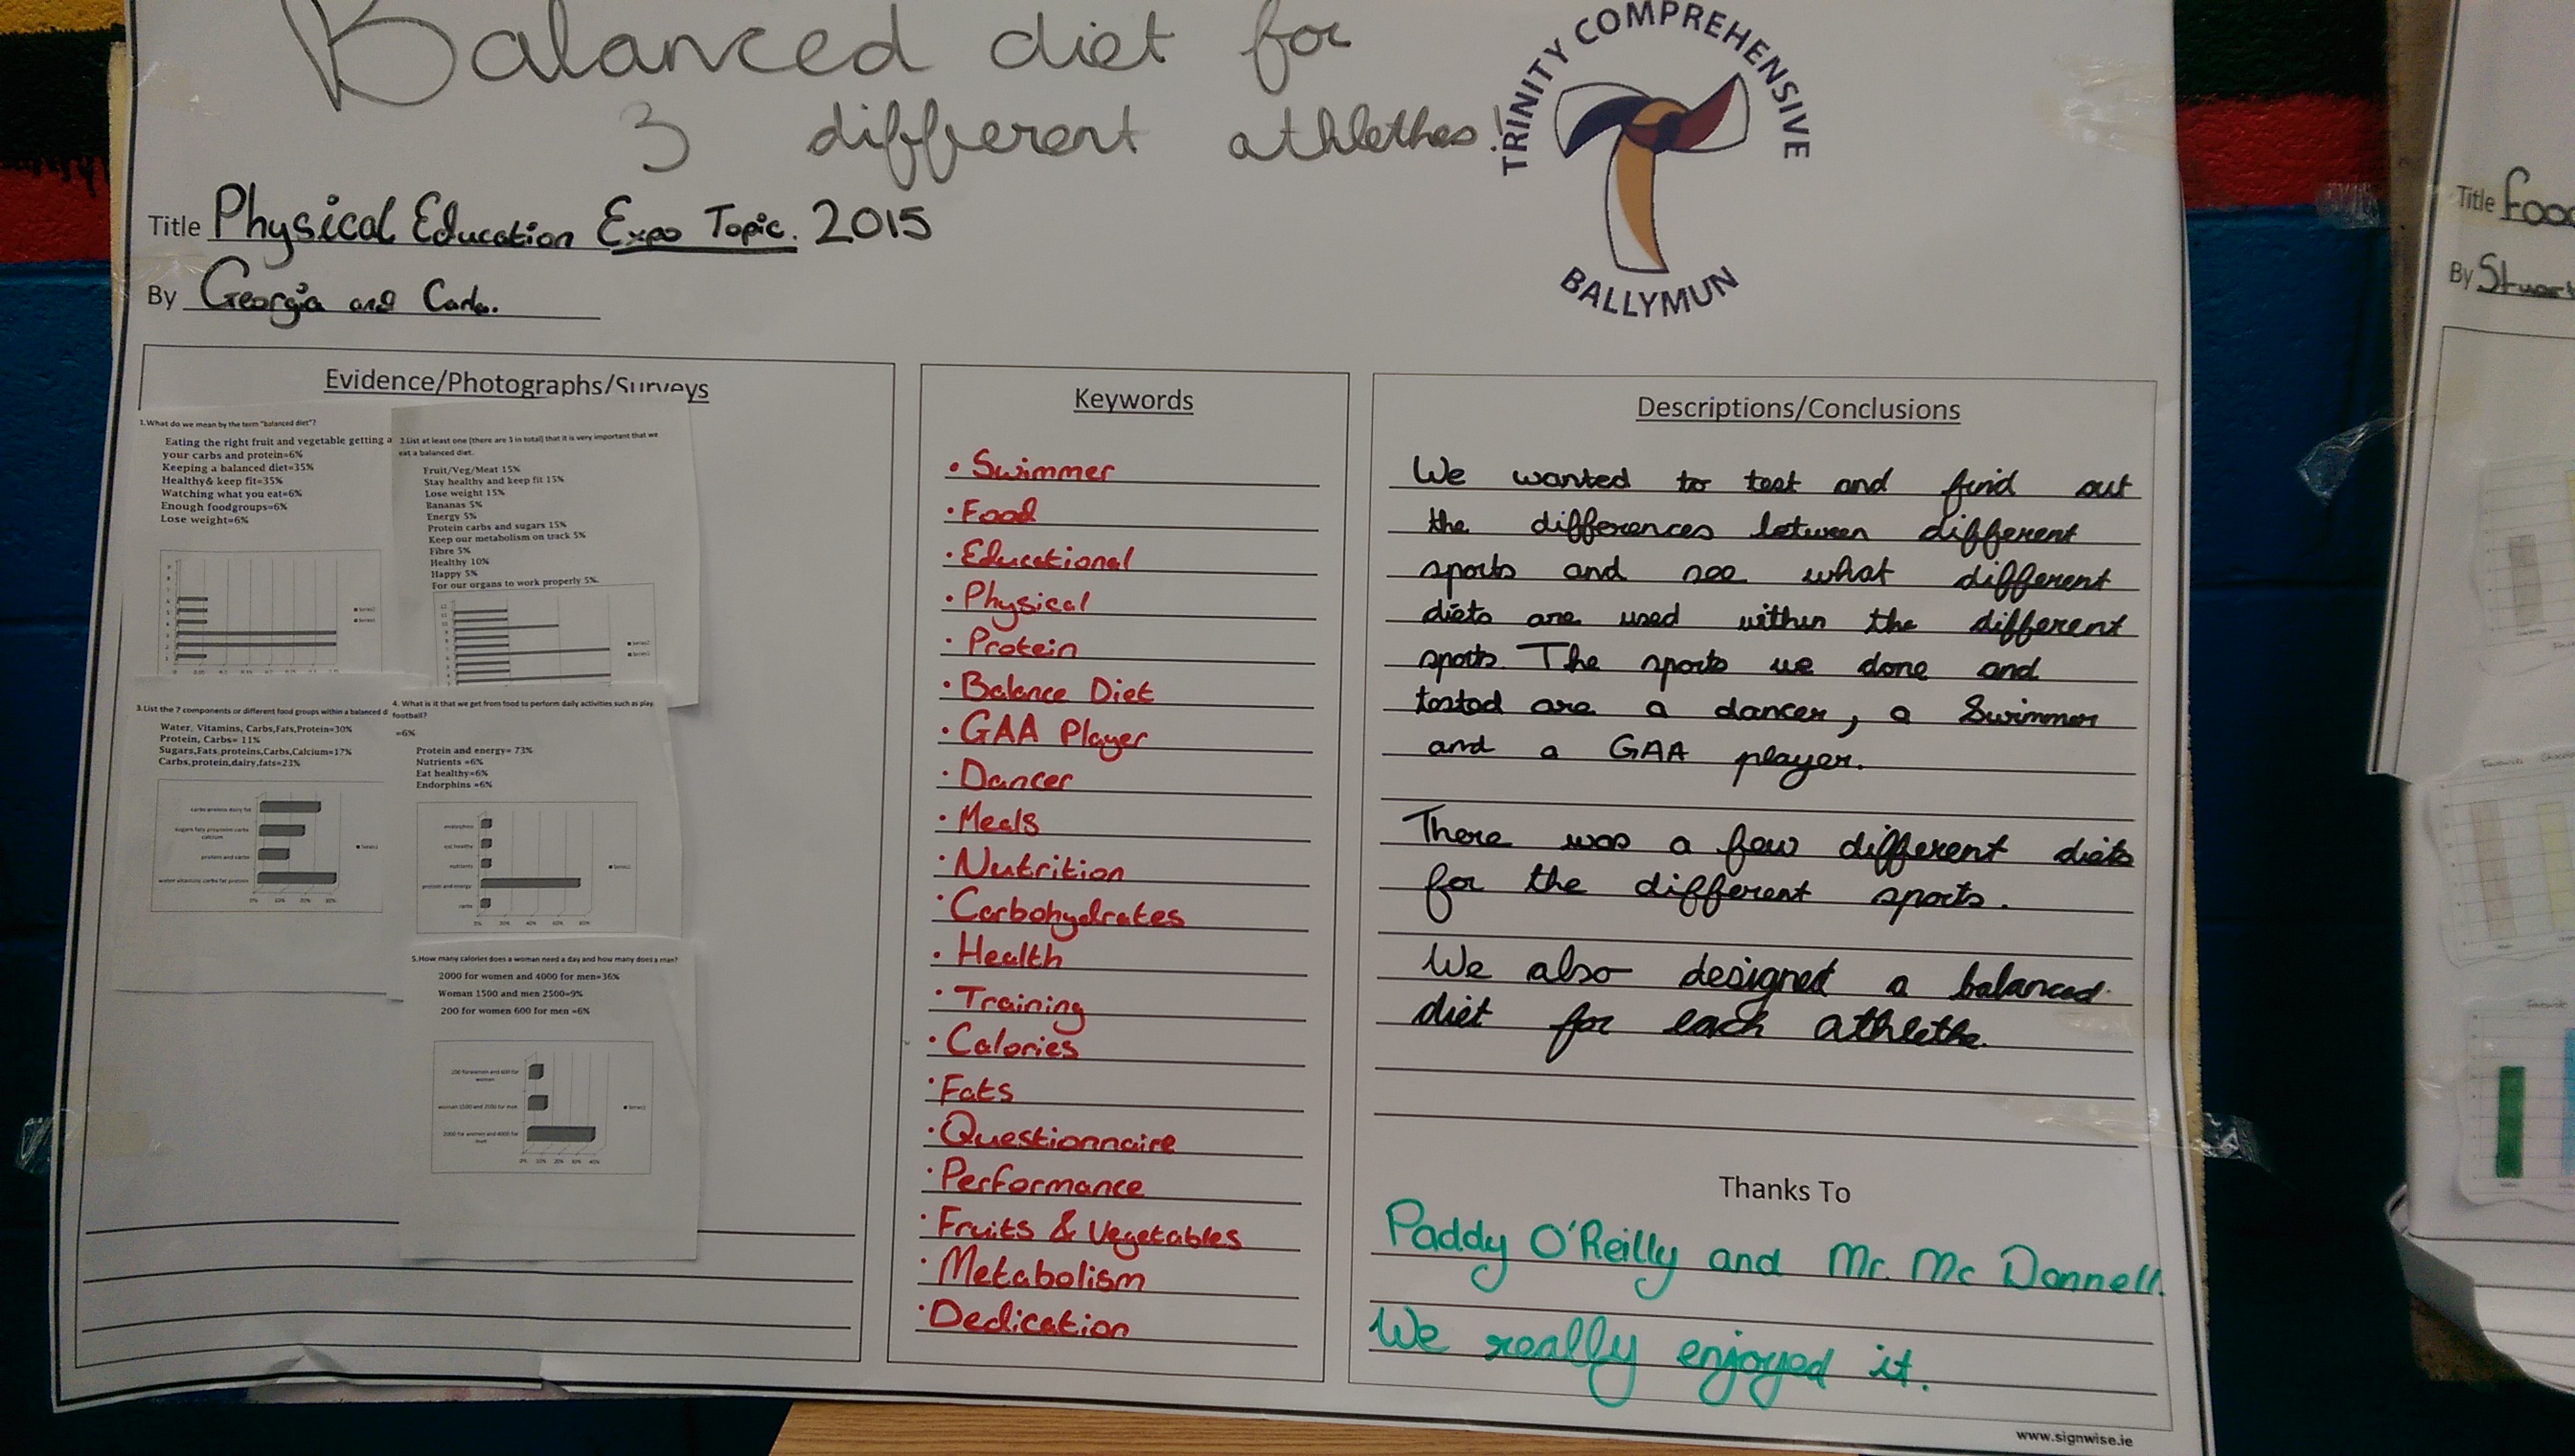 Balanced diet for
3 different athlethes!
TRINITY COMPREHENSIVE
BALLYMUN
Title Physical Education Expo Topic. 2015
By Georgia and Carla.
Evidence/Photographs/Surveys
1.What do we mean by the term "balanced diet"?
Eating the right fruit and vegetable getting a
your carbs and protein=6%
Keeping a balanced diet=35%
Healthy& keep fit=35%
Watching what you eat=6%
Enough foodgroups=6%
Lose weight=6%
2.List at least one (there are 5 in total) that it is very important that we
eat a balanced diet.
Fruit/Veg/Meat 15%
Stay healthy and keep fit 15%
Lose weight 15%
Bananas 5%
Energy 5%
Protein carbs and sugars 15%
Keep our metabolism on track 5%
Fibre 5%
Healthy 10%
Happy 5%
For our organs to work properly 5%.
3.List the 7 components or different food groups within a balanced d
Water, Vitamins, Carbs,Fats,Protein=30%
Protein, Carbs= 11%
Sugars,Fats,proteins,Carbs,Calcium=17%
Carbs,protein,dairy,fats=23%
4. What is it that we get from food to perform daily activities such as play
football?
=6%
Protein and energy= 73%
Nutrients =6%
Eat healthy=6%
Endorphins =6%
5.How many calories does a woman need a day and how many does a man?
2000 for women and 4000 for men=36%
Woman 1500 and men 2500=9%
200 for women 600 for men =6%
Keywords
• Swimmer
• Food
• Educational
• Physical
• Protein
• Balance Diet
• GAA Player
• Dancer
• Meals
• Nutrition
• Carbohydrates
• Health
• Training
• Calories
• Fats
• Questionnaire
• Performance
• Fruits & Vegetables
• Metabolism
• Dedication
Descriptions/Conclusions
We wanted to test and find out
the differences between different
sports and see what different
diets are used within the different
sports. The sports we done and
tested are a dancer, a Swimmer
and a GAA player.
There was a few different diets
for the different sports.
We also designed a balanced
diet for each athlethe.
Thanks To
Paddy O'Reilly and Mr. Mc Donnell.
We really enjoyed it.
www.signwise.ie
Title Food
By Stuart